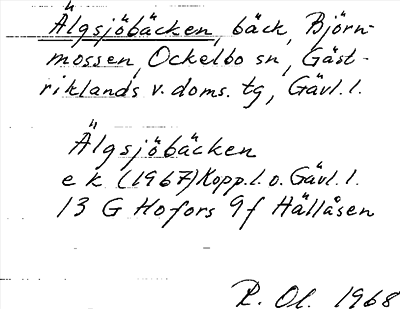 Älgsjöbäcken, bäck, Björn-
mossen, Ockelbo sn, Gäst-
riklands v. doms. tg, Gävl. l.
Älgsjöbäcken
e k (1967) Kopp. l. o. Gävl. l.
13 G Hofors 9f Hällåsen
R. Ol. 1968